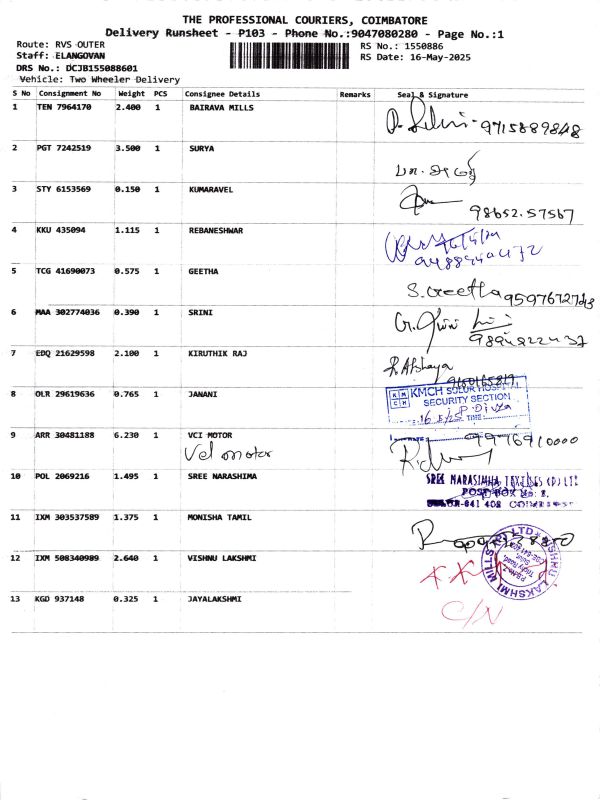 THE PROFESSIONAL COURIERS, COIMBATORE
Delivery Runsheet - P103 - Phone No.:9047080280 - Page No.:1
Route: RVS OUTER
RS No.: 1550886
Staff: ELANGOVAN
RS Date: 16-May-2025
DRS No.: DCJB155088601
Vehicle: Two Wheeler Delivery
S No Consignment No Weight PCS Consignee Details Remarks Seal & Signature
1 TEN 7964170 2.400 1 BAIRAVA MILLS 9715889848
2 PGT 7242519 3.500 1 SURYA
3 STY 6153569 0.150 1 KUMARAVEL 98652.57567
4 KKU 435094 1.115 1 REBANESHWAR
5 TCG 41690073 0.575 1 GEETHA S.Geetha
6 MAA 302774036 0.390 1 SRINI
7 EDQ 21629598 2.100 1 KIRUTHIK RAJ
8 OLR 29619636 0.765 1 JANANI KMCH SULUR HOSPITAL
SECURITY SECTION
9 ARR 30481188 6.230 1 VCI MOTOR 9976910000
Vel motor
10 POL 2069216 1.495 1 SREE NARASIMA SREE NARASIMHA TEXTILES (P) LTD
POST BOX No: 2,
SULUR-641 402 COIMBATORE
11 IXM 303537589 1.375 1 MONISHA TAMIL
12 IXM 508340989 2.640 1 VISHNU LAKSHMI VISHNU LAKSHMI MILLS (P) LTD
13 KGD 937148 0.325 1 JAYALAKSHMI C/N